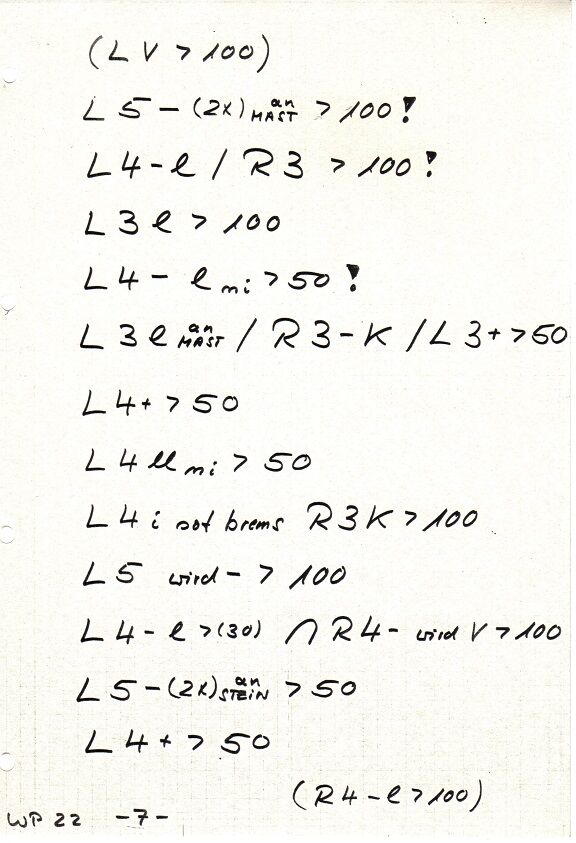 (L V > 100)
L 5 - (2x) an MAST > 100 !
L 4 - l / R 3 > 100 !
L 3 l > 100
L 4 - l ni > 50 !
L 3 l an MAST / R 3 - K / L 3 + > 50
L 4 + > 50
L 4 ll ni > 50
L 4 i not brems R 3 K > 100
L 5 wird - > 100
L 4 - l > (30) ∩ R 4 - wird V > 100
L 5 - (2x) an STEIN > 50
L 4 + > 50
(R 4 - l > 100)
WP 22 - 7 -